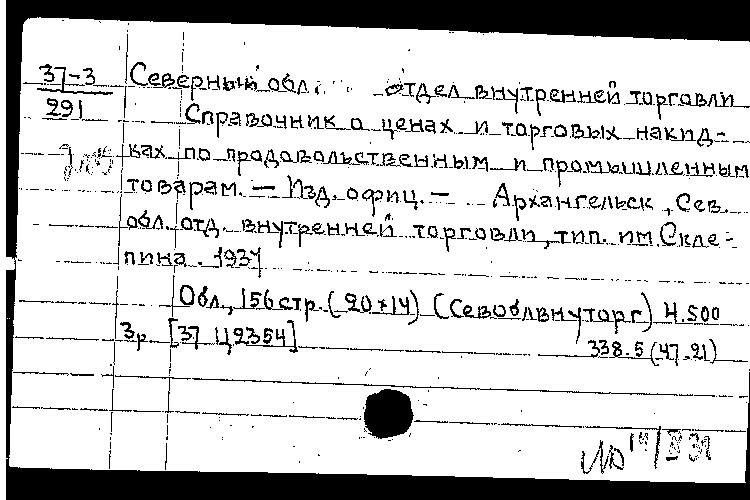 37-3 Северный обл. отдел внутренней торговли
291 Справочник о ценах и торговых накид-
ках по продовольственным и промышленным
товарам. — Изд. офиц. — Архангельск, Сев.
обл. отд. внутренней торговли, тип. им. Скле-
пина. 1937
Обл., 156 стр. (20×14) (Севоблвнуторг) 4.500
3 р. [37 Ц2354]
338.5 (47.21)